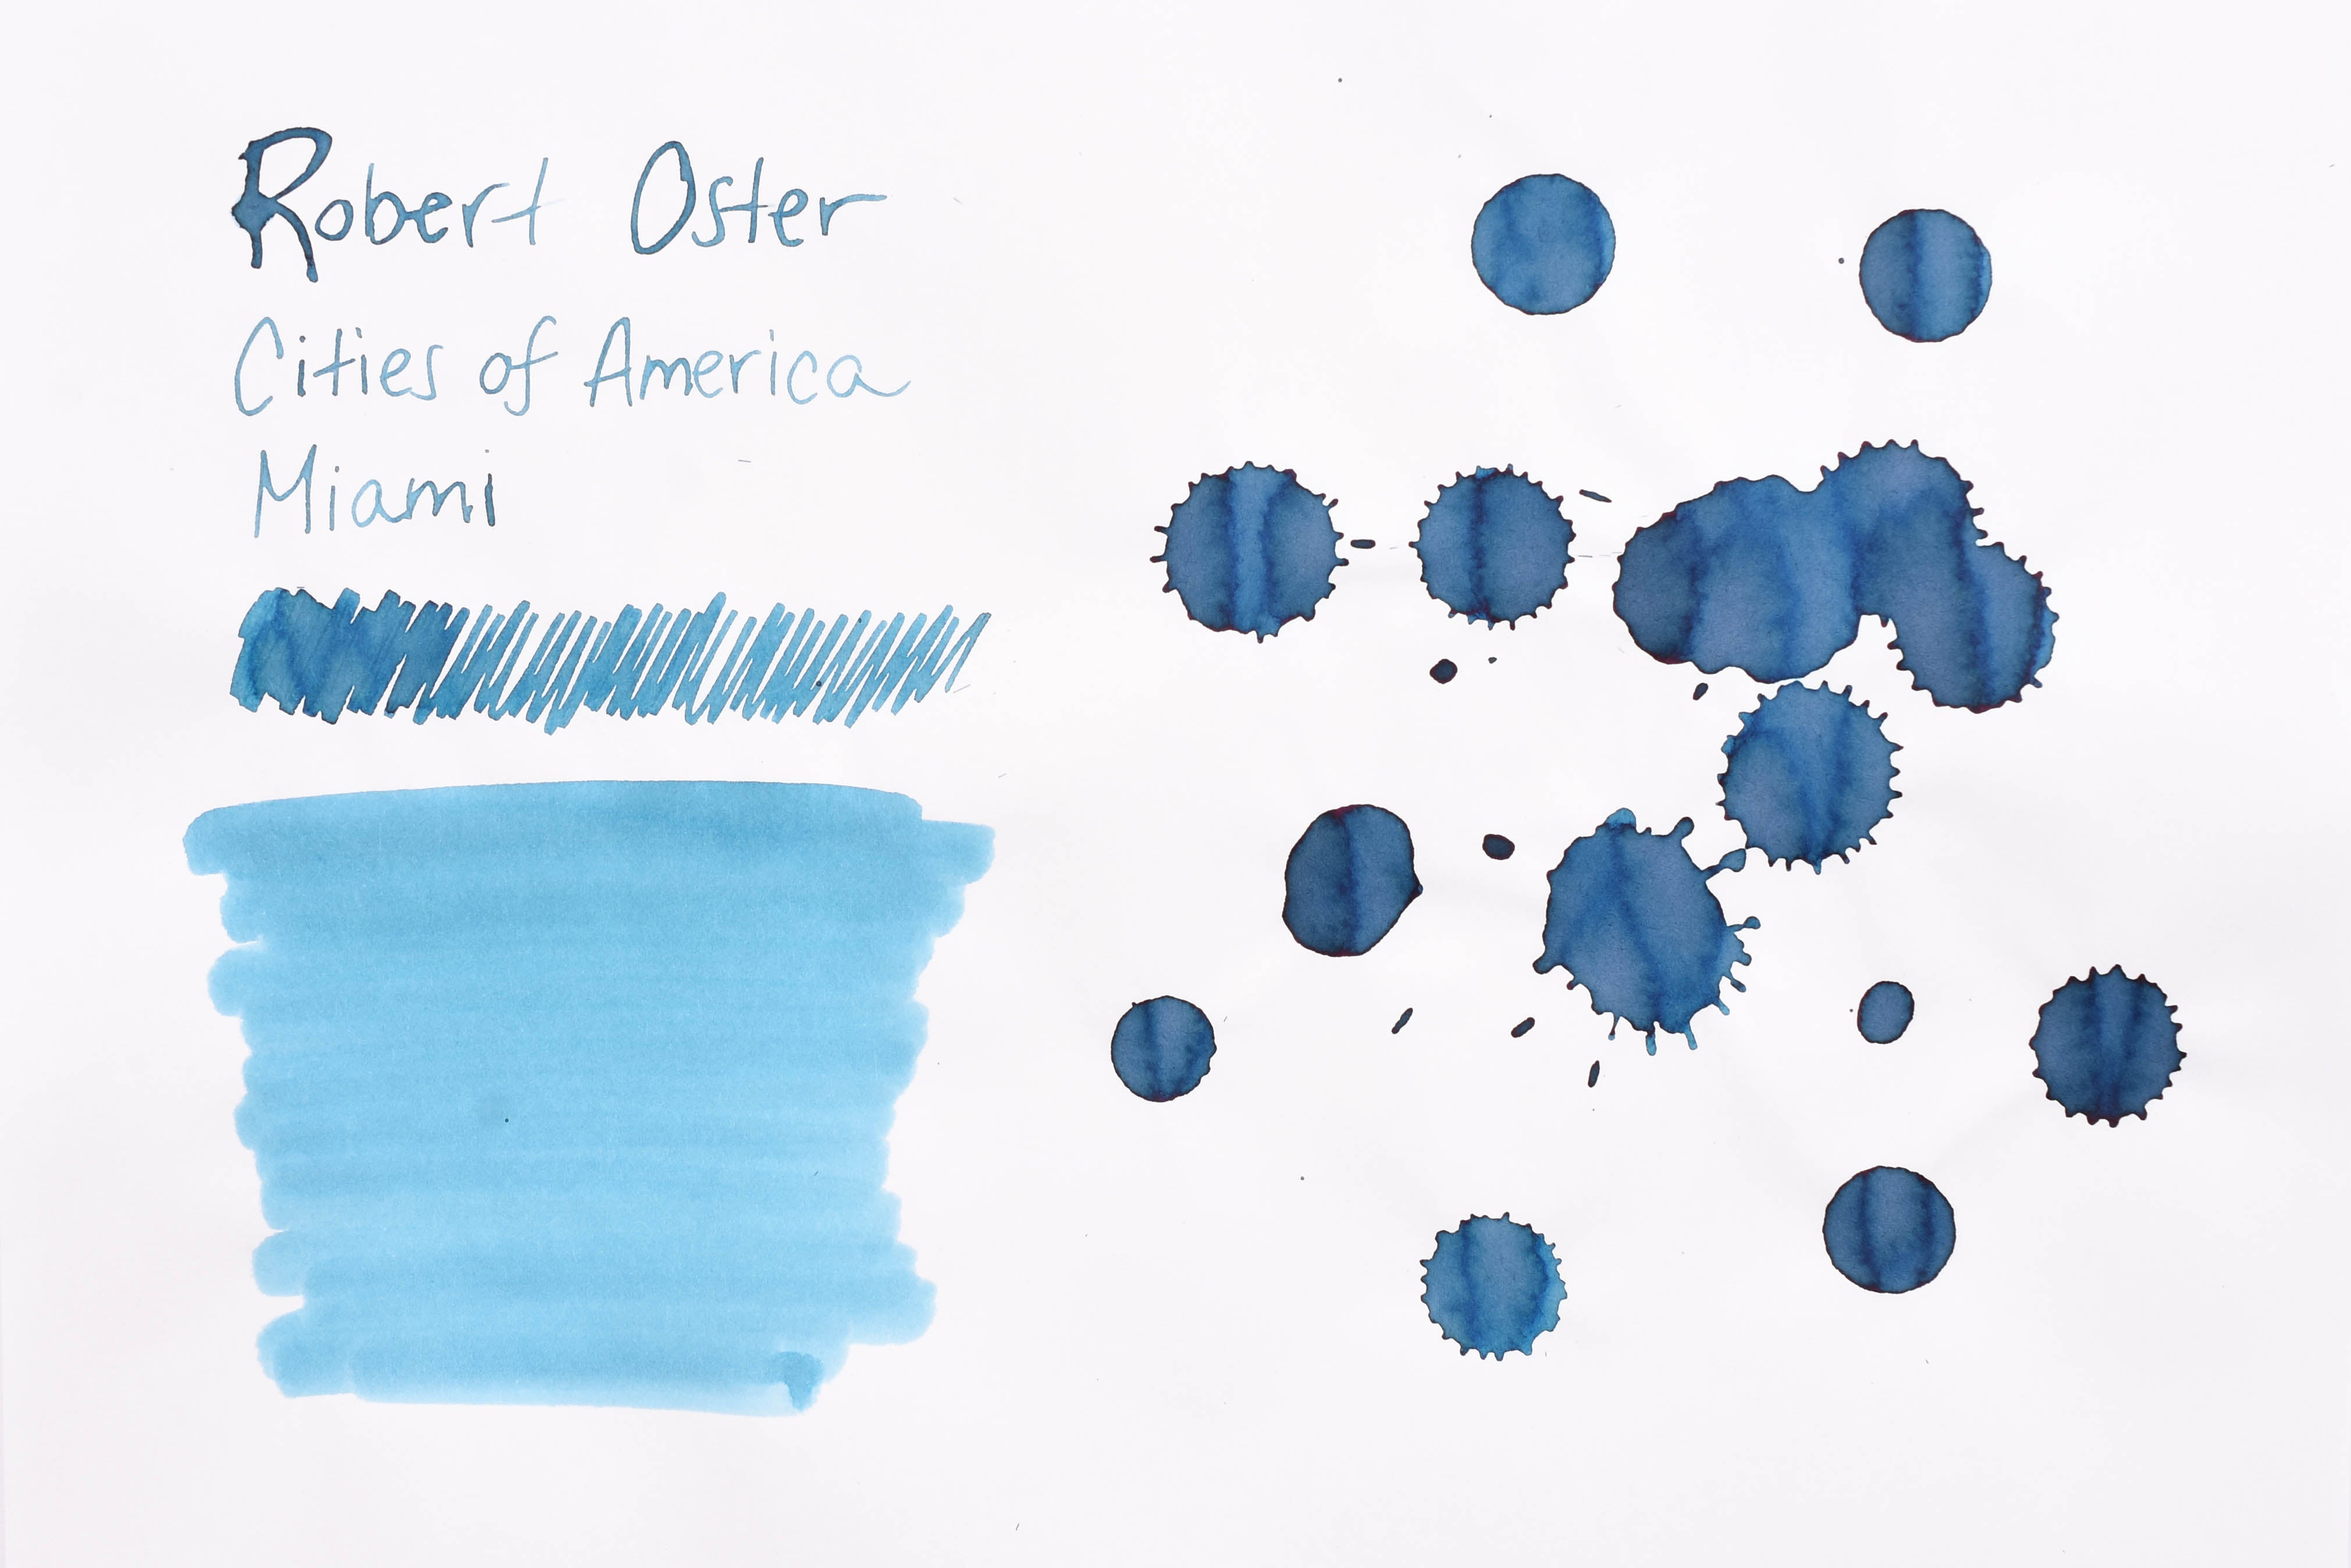 Robert Oster
Cities of America
Miami